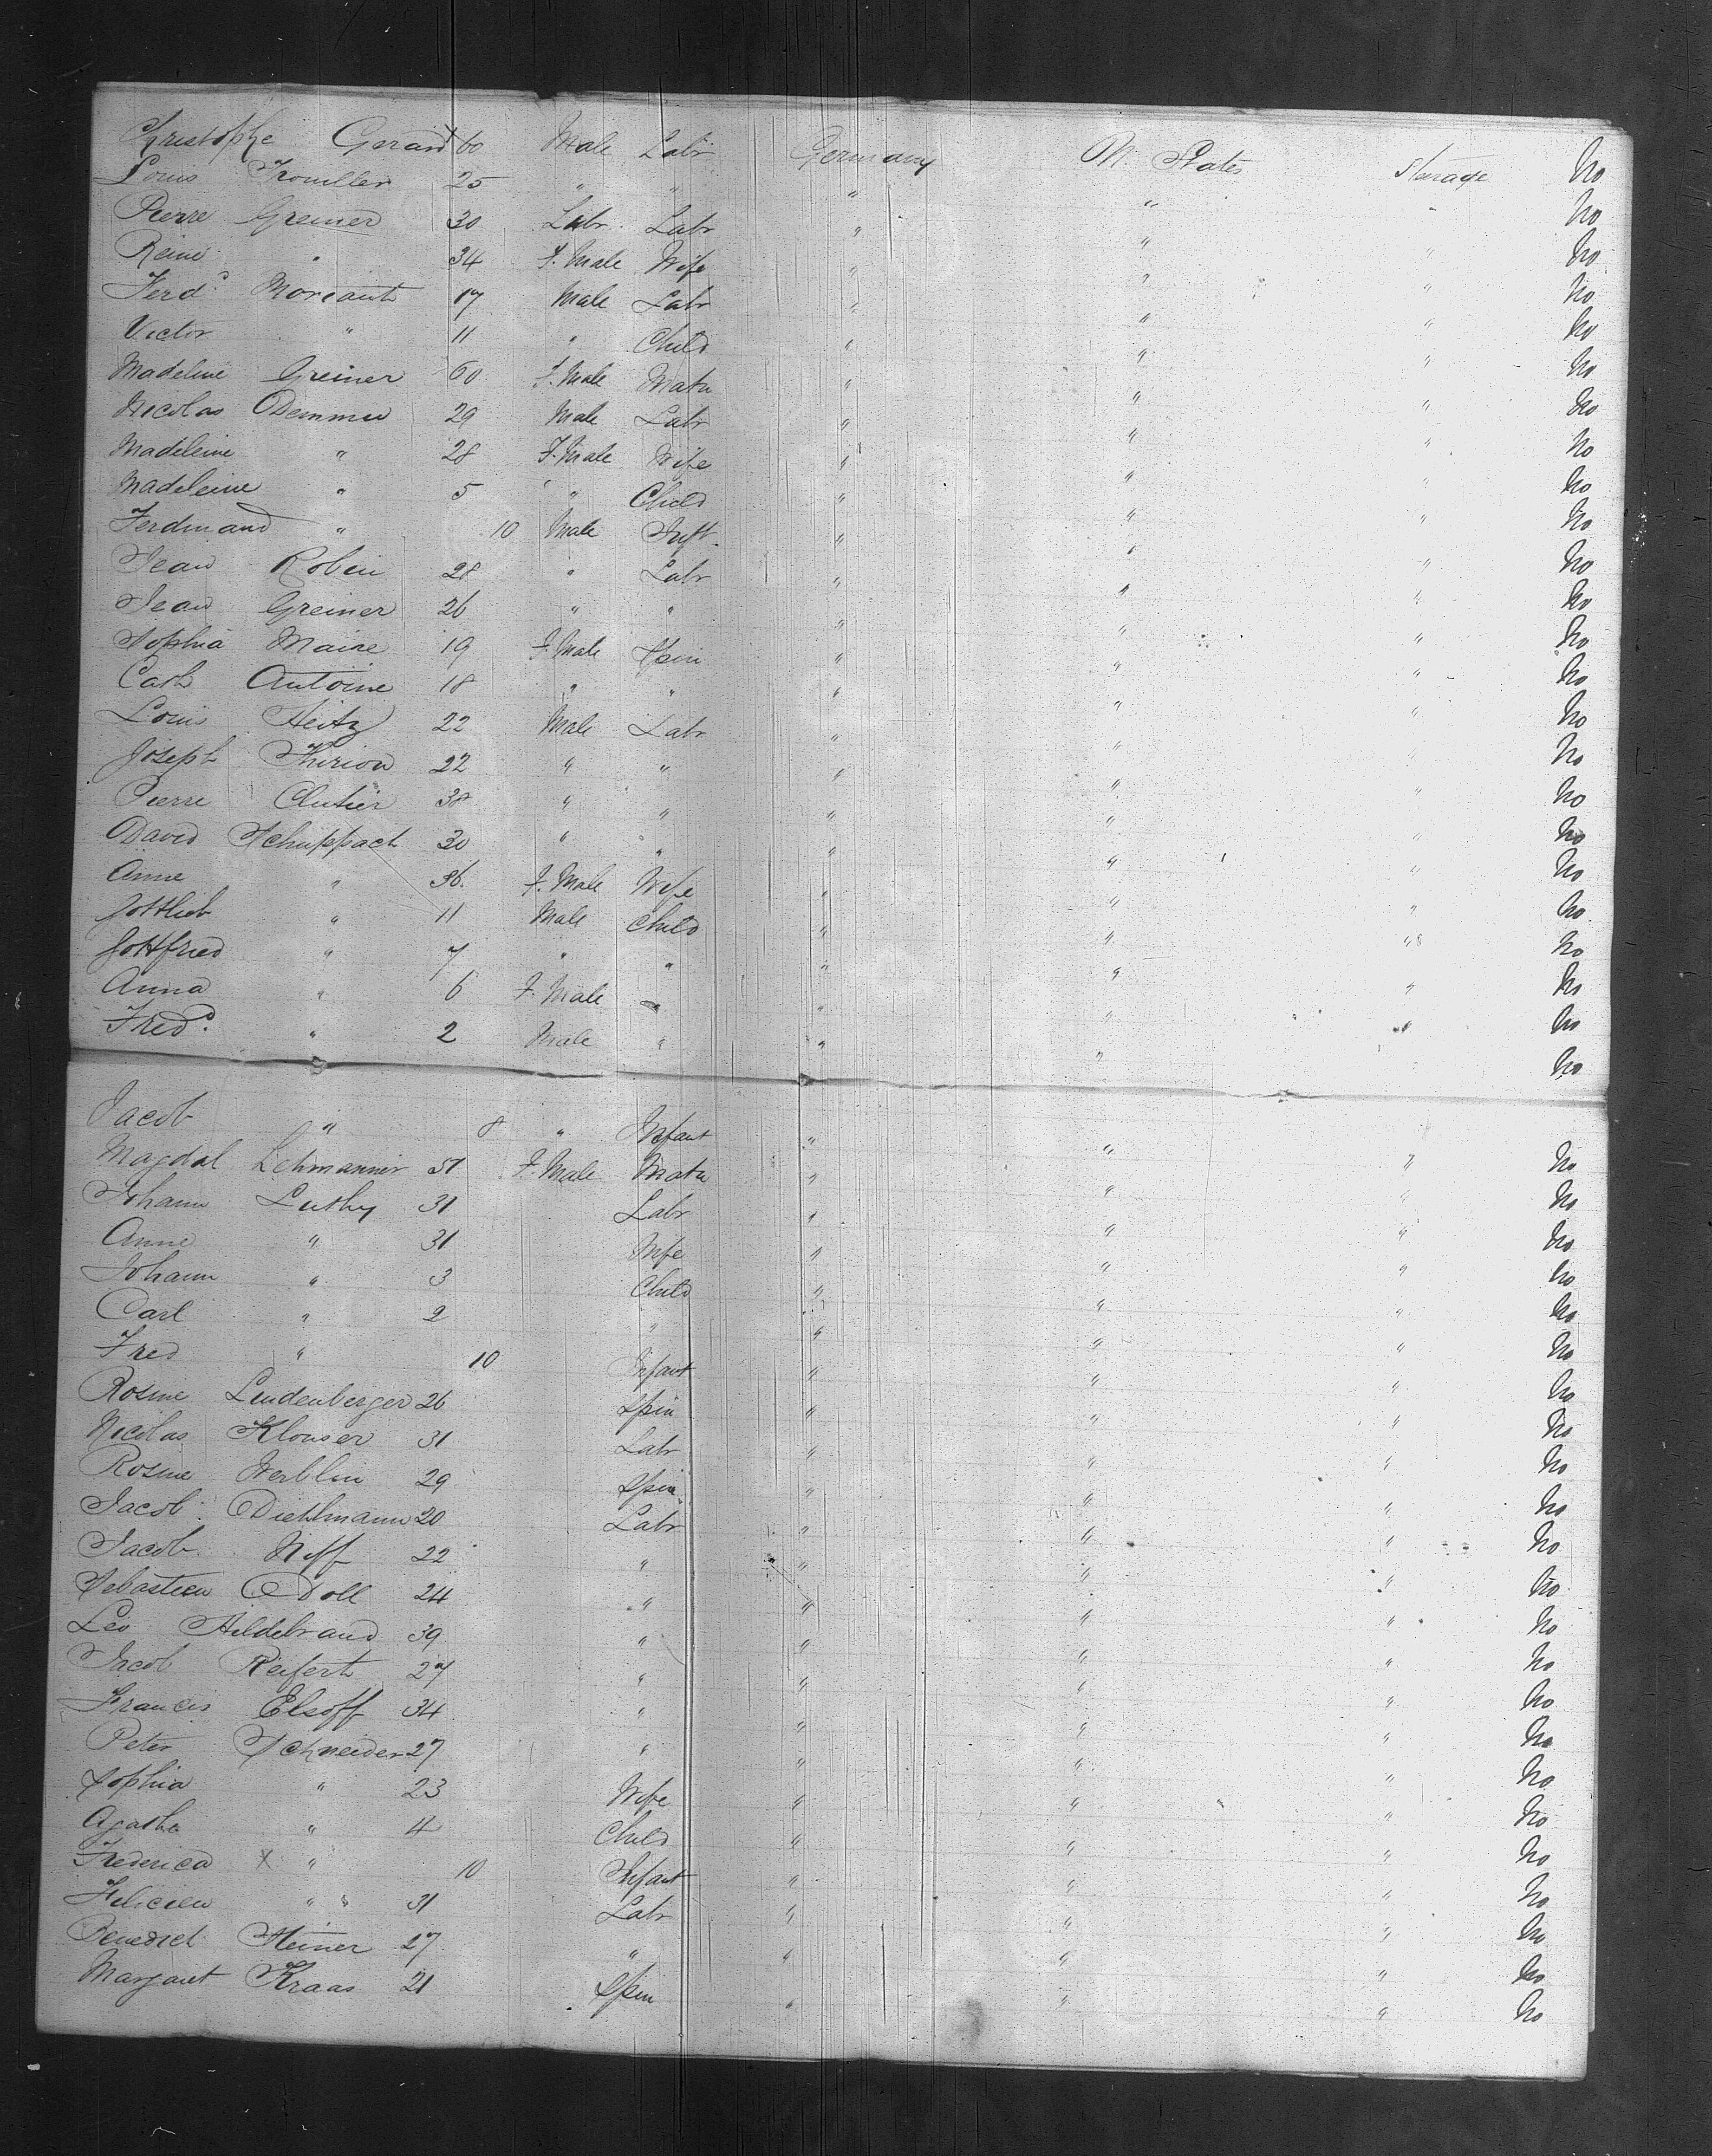 Christophe Gerard 60 Male Labr Germany U. States Sterage No
Louis Trouiller 25 " " " " " No
Pierre Greiner 30 Labr Labr " " " No
Reine " 34 F. Male Wife " " " No
Ferd.d Moreaint 17 Male Labr " " " No
Victor " 11 " Child " " " No
Madeline Greiner 60 F. Male Matn " " " No
Nicolas Demmer 29 Male Labr " " " No
Madeleine " 28 F. Male Wife " " " No
Madeleine " 5 " Child " " " No
Ferdinand " 10 Male Inft. " " " No
Jean Robin 28 " Labr " " " No
Jean Greiner 26 " " " " " No
Sophia Maire 19 F. Male Spin " " " No
Cath Antoine 18 " " " " " No
Louis Heitz 22 Male Labr " " " No
Joseph Thirion 22 " " " " " No
Pierre Clutier 38 " " " " " No
David Schuppach 30 " " " " " No
Anne " 36. F. Male Wife " " " No
Gottlieb " 11 Male Child " " " No
Gottfried " 7 " " " " " No
Anna " 6 F. Male " " " " No
Fred.d " 2 Male " " " " No
No
Jacob " 8 " Infant " " "
Magdal Lehmannir 51 F. Male Matn " " " No
Johann Luthy 31 Labr " " " No
Anne " 31 Wife " " " No
Johann " 3 Child " " " No
Carl " 2 " " " " No
Fred " 10 Infant " " " No
Rosine Lindenberger 26 Spin " " " No
Nicolas Klouser 31 Labr " " " No
Rosine Werblin 29 Spin " " " No
Jacob Diethlmann 20 Labr " " " No
Jacob Niff 22 " " " " No
Sebastien Doll 24 " " " " No
Leo Hildebrand 39 " " " " No
Jacob Reifert 27 " " " " No
Francis Elsoff 34 " " " " No
Peter Schneider 27 " " " " No
Sophia " 23 Wife " " " No
Agatha " 4 Child " " " No
Frederica X " 10 Infant " " " No
Felicien " " 31 Labr " " " No
Benedict Steiner 27 " " " " No
Margaret Kraas 21 Spin " " " No